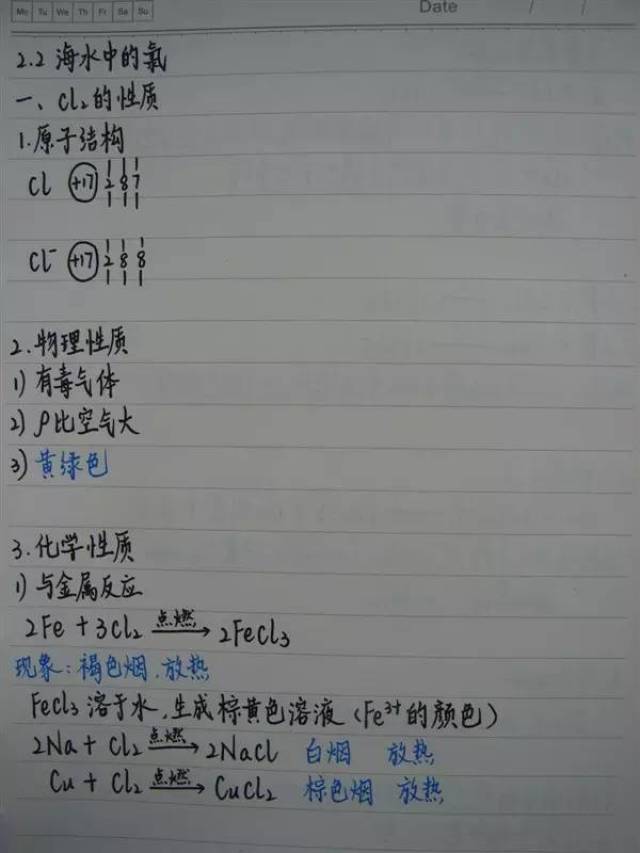 Mo Tu We Th Fr Sa Su
Date / /
2.2 海水中的氯
一、Cl₂的性质
1.原子结构
Cl +17 2 8 7
Cl⁻ +17 2 8 8
2.物理性质
1) 有毒气体
2) ρ比空气大
3) 黄绿色
3.化学性质
1) 与金属反应
2Fe + 3Cl₂ 点燃→ 2FeCl₃
现象:褐色烟,放热
FeCl₃溶于水,生成棕黄色溶液(Fe³⁺的颜色)
2Na + Cl₂ 点燃→ 2NaCl 白烟 放热
Cu + Cl₂ 点燃→ CuCl₂ 棕色烟 放热